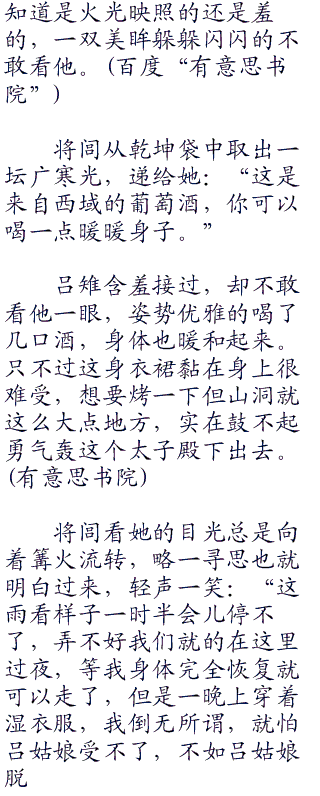 知道是火光映照的还是羞
的，一双美眸躲躲闪闪的不
敢看他。(百度“有意思书
院”)
将闾从乾坤袋中取出一
坛广寒光，递给她：“这是
来自西域的葡萄酒，你可以
喝一点暖暖身子。”
吕雉含羞接过，却不敢
看他一眼，姿势优雅的喝了
几口酒，身体也暖和起来。
只不过这身衣裙黏在身上很
难受，想要烤一下但山洞就
这么大点地方，实在鼓不起
勇气轰这个太子殿下出去。
(有意思书院)
将闾看她的目光总是向
着篝火流转，略一寻思也就
明白过来，轻声一笑：“这
雨看样子一时半会儿停不
了，弄不好我们就的在这里
过夜，等我身体完全恢复就
可以走了，但是一晚上穿着
湿衣服，我倒无所谓，就怕
吕姑娘受不了，不如吕姑娘
脱